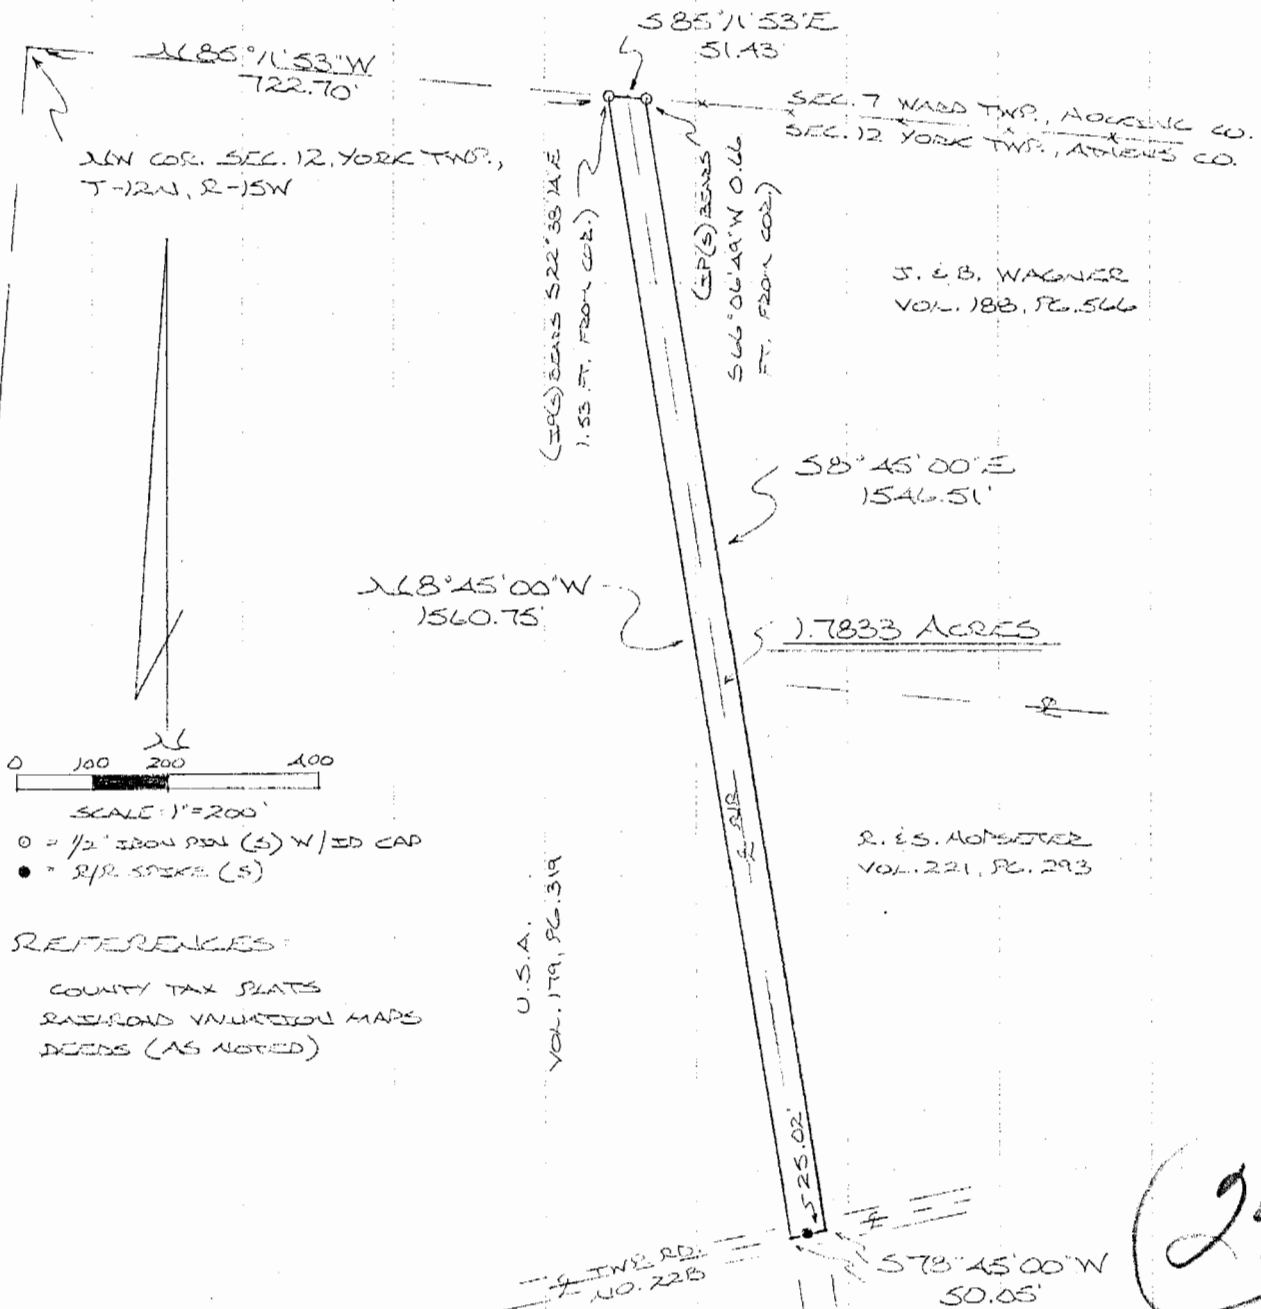 S 85°11'53"E
51.43'
N 85°11'53"W
722.70'
SEC. 7 WARD TWP., HOCKING CO.
SEC. 12 YORK TWP., ATHENS CO.
NW COR. SEC. 12, YORK TWP.,
T-12N, R-15W
(IP(S) BEARS S22°38'14"E
1.53 FT. FROM COR.)
(IP(S) BEARS
S66°06'49"W 0.66
FT. FROM COR.)
J. & B. WAGNER
VOL. 188, PG. 566
S 8°45'00"E
1546.51'
N 8°45'00"W
1560.75'
1.7833 ACRES
N
0 100 200 400
SCALE: 1"=200'
o = 1/2" IRON PIN (S) W/ID CAP
● = R/R SPIKE (S)
℄ R/R
R. & S.
VOL. 221, PG. 293
U.S.A.
VOL. 179, PG. 319
REFERENCES:
COUNTY TAX PLATS
RAILROAD VALUATION MAPS
DEEDS (AS NOTED)
25.02'
℄ TWP. RD.
NO. 228
S 78°45'00"W
50.05'